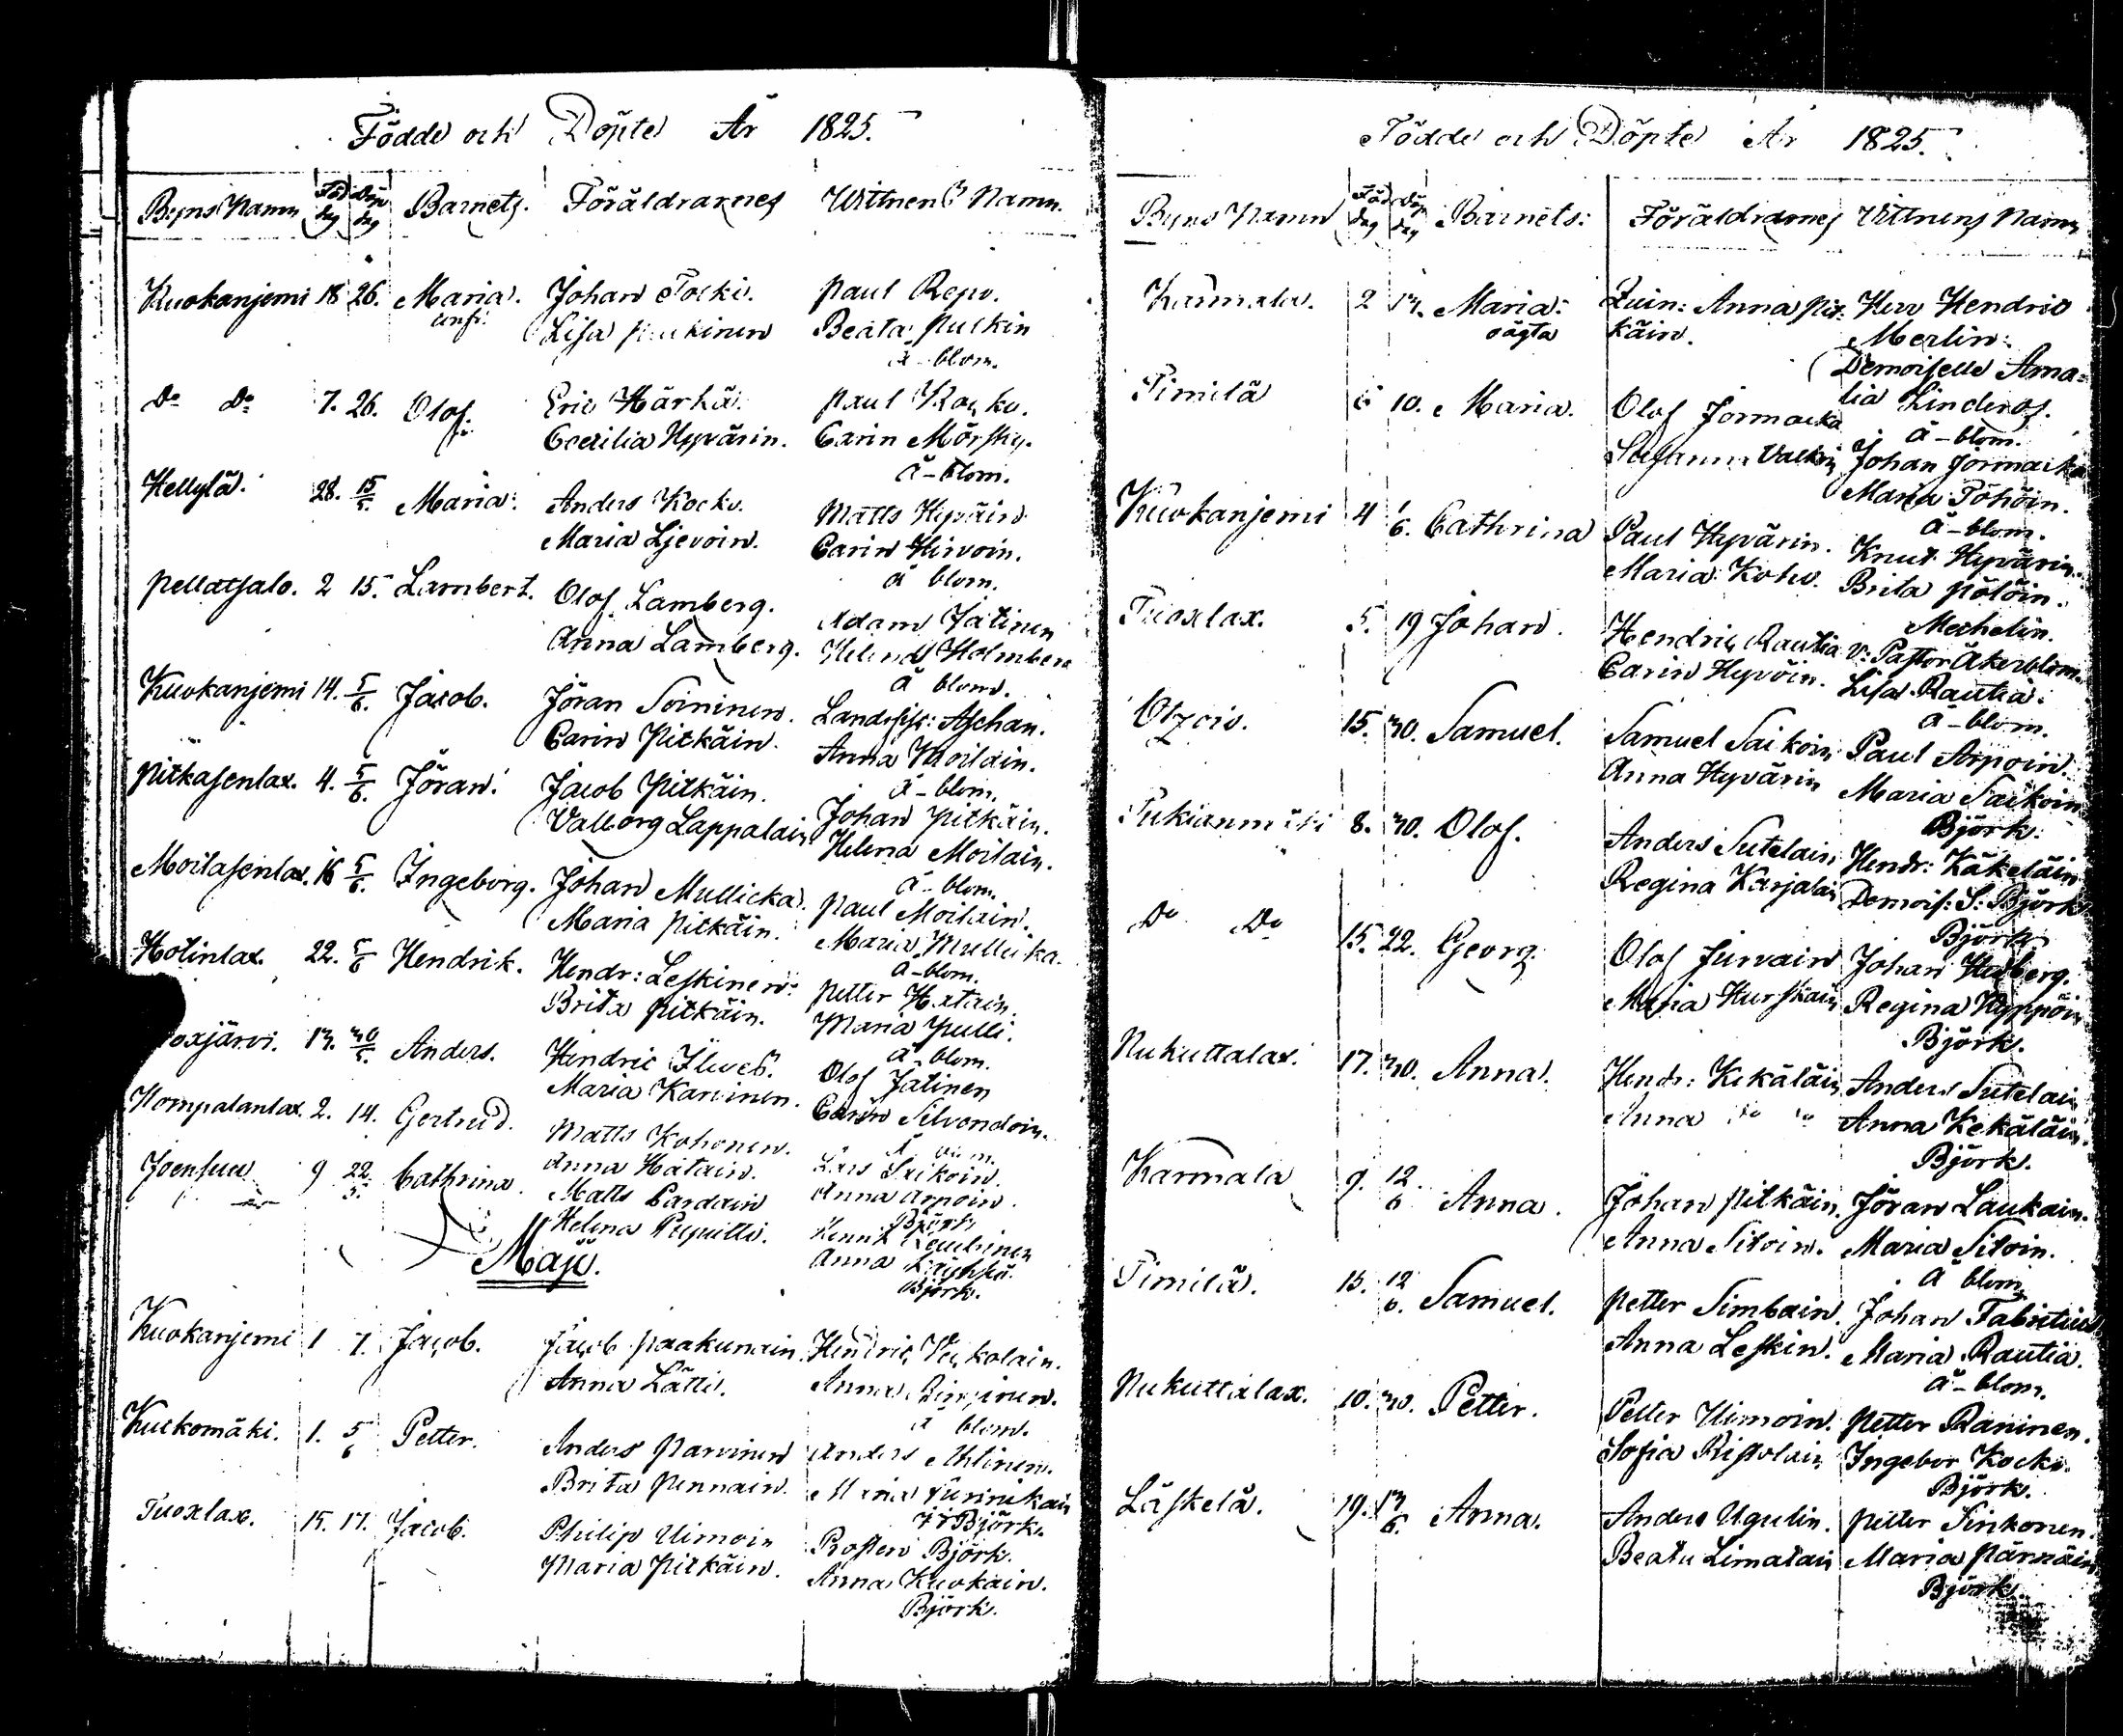 Födde och Döpte År 1825.
Byns Namn Föd dag Döp dag Barnets. Föräldrarnes Wittnens Namn.
Kuokanjemi 18 26. Maria. Johan Tocki. Paul Repo.
Lisa Beata Pulkin
ä-blom.
Do Do 7. 26. Olof. Eric Härkä. Paul Kocko.
Coecilia Hyvärin. Carin Mörsky.
ä-blom.
Hellylä. 28. 15/5. Maria. Anders Kocko. Matts Hyväin
Maria Ljevoin. Carin Hirvoin.
ä blom.
Pellatsalo. 2 15. Lambert. Olof Lamberg. Adam Jatinen
Anna Lamberg. Helena Holmberg
ä blom.
Kuokanjemi 14. 5/6. Jacob. Jöran Soininen. Landsfis: Aschan.
Carin Pitkäin. Anna Moilain.
ä-blom.
Pitkasenlax. 4. 5/6. Jöran. Jacob Pitkäin. Johan Pitkäin.
Valborg Lappalain Helena Moilain.
ä-blom.
Moilasenlax. 16 5/6. Ingeborg. Johan Mullicka. Paul Moilain.
Maria Pitkäin. Maria Mullicka.
ä-blom.
Hotinlax. 22. 5/6 Hendrik. Hendr: Leskinen. Petter Hatain.
Brita Pitkäin. Maria Pulli.
ä-blom.
oxjärvi. 13. 30/5. Anders. Hendric Ilves. Olof Jatinen
Maria Karvinen. Carin Silvendoin.
Kompalanlax. 2. 14. Gertrud. Matts Kohonen. Lars Saikoin.
Anna Hatain. Anna Arpoin.
Björk
Joensuu 9 22/5. Cathrina. Matts Pardain
Helena Puputti. Anna
Björk.
Maji.
Kuokanjemi 1 7. Jacob. Jacob Paakunain. Hendric
Anna Lätti. Anna
ä blom.
Kuckomäki. 1. 5/6 Petter. Anders Parvinen Anders
Brita Pennain. Maria
Björk.
Tuoxlax. 15. 17. Jacob. Philip Uimoin Prosten Björk.
Maria Pitkäin. Anna Kuokain.
Björk.
Födde och Döpte År 1825.
Byns Namn Föd dag Döp dag Barnets: Föräldrarnes Vittnens Namn
Karmala. 2 13. Maria. Quin: Anna Pit: Herr Hendric
oägta käin. Merlin.
Demoiselle Ama=
lia Linderos.
ä-blom.
Timilä 10. Maria. Olof Jormacka Johan Jormacka
Susanna Maria Töhöin.
ä-blom.
Kuokanjemi 4 1/6. Cathrina Paul Hyvärin. Knut Hyvärin.
Maria Koho. Brita Pölöin.
Mechelin.
Tuoxlax. 5. 19 Johan. Hendric Rautia v: Pastor Åkerblom.
Carin Hyvöin. Lisa Rautia.
ä-blom.
Otzois. 15. 30. Samuel. Samuel Saikoin Paul Arpoin.
Anna Hyvärin Maria Saikoin
Björk.
8. 30. Olof. Anders Sutelain Hendr: Käkeläin
Regina Karjalain Demois: S: Björk
Björk
Do Do 15. 22. Georg. Olof Jurvain Johan Hedberg.
Maria Hurskain Regina Hyppöin
Björk.
Nukuttalax. 17. 30. Anna. Hendr: Kekäläin Anders Sutelain
Anna Do Do Anna Kekäläin.
Björk.
Karmala 9. 12/6 Anna. Johan Pitkäin. Jöran Laukain.
Anna Sitoin. Maria Sitoin.
ä blom
Timilä. 15. 12/6. Samuel. Petter Simbain. Johan Fabritius
Anna Leskin. Maria Rautia.
ä-blom.
Nukuttalax. 10. 30. Petter. Petter Uimoin. Petter Raninen.
Sofia Ristolain Ingebor Kocko.
Björk.
Läskelä. 19. 13/6. Anna. Anders Ugulin. Petter Sinkonen.
Beata Limatain Maria Pärnäin
Björk.